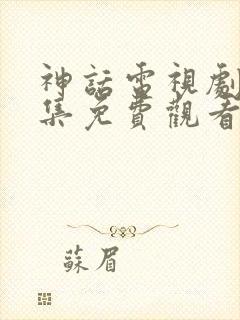 神話電視劇
集免費觀看
蘇眉